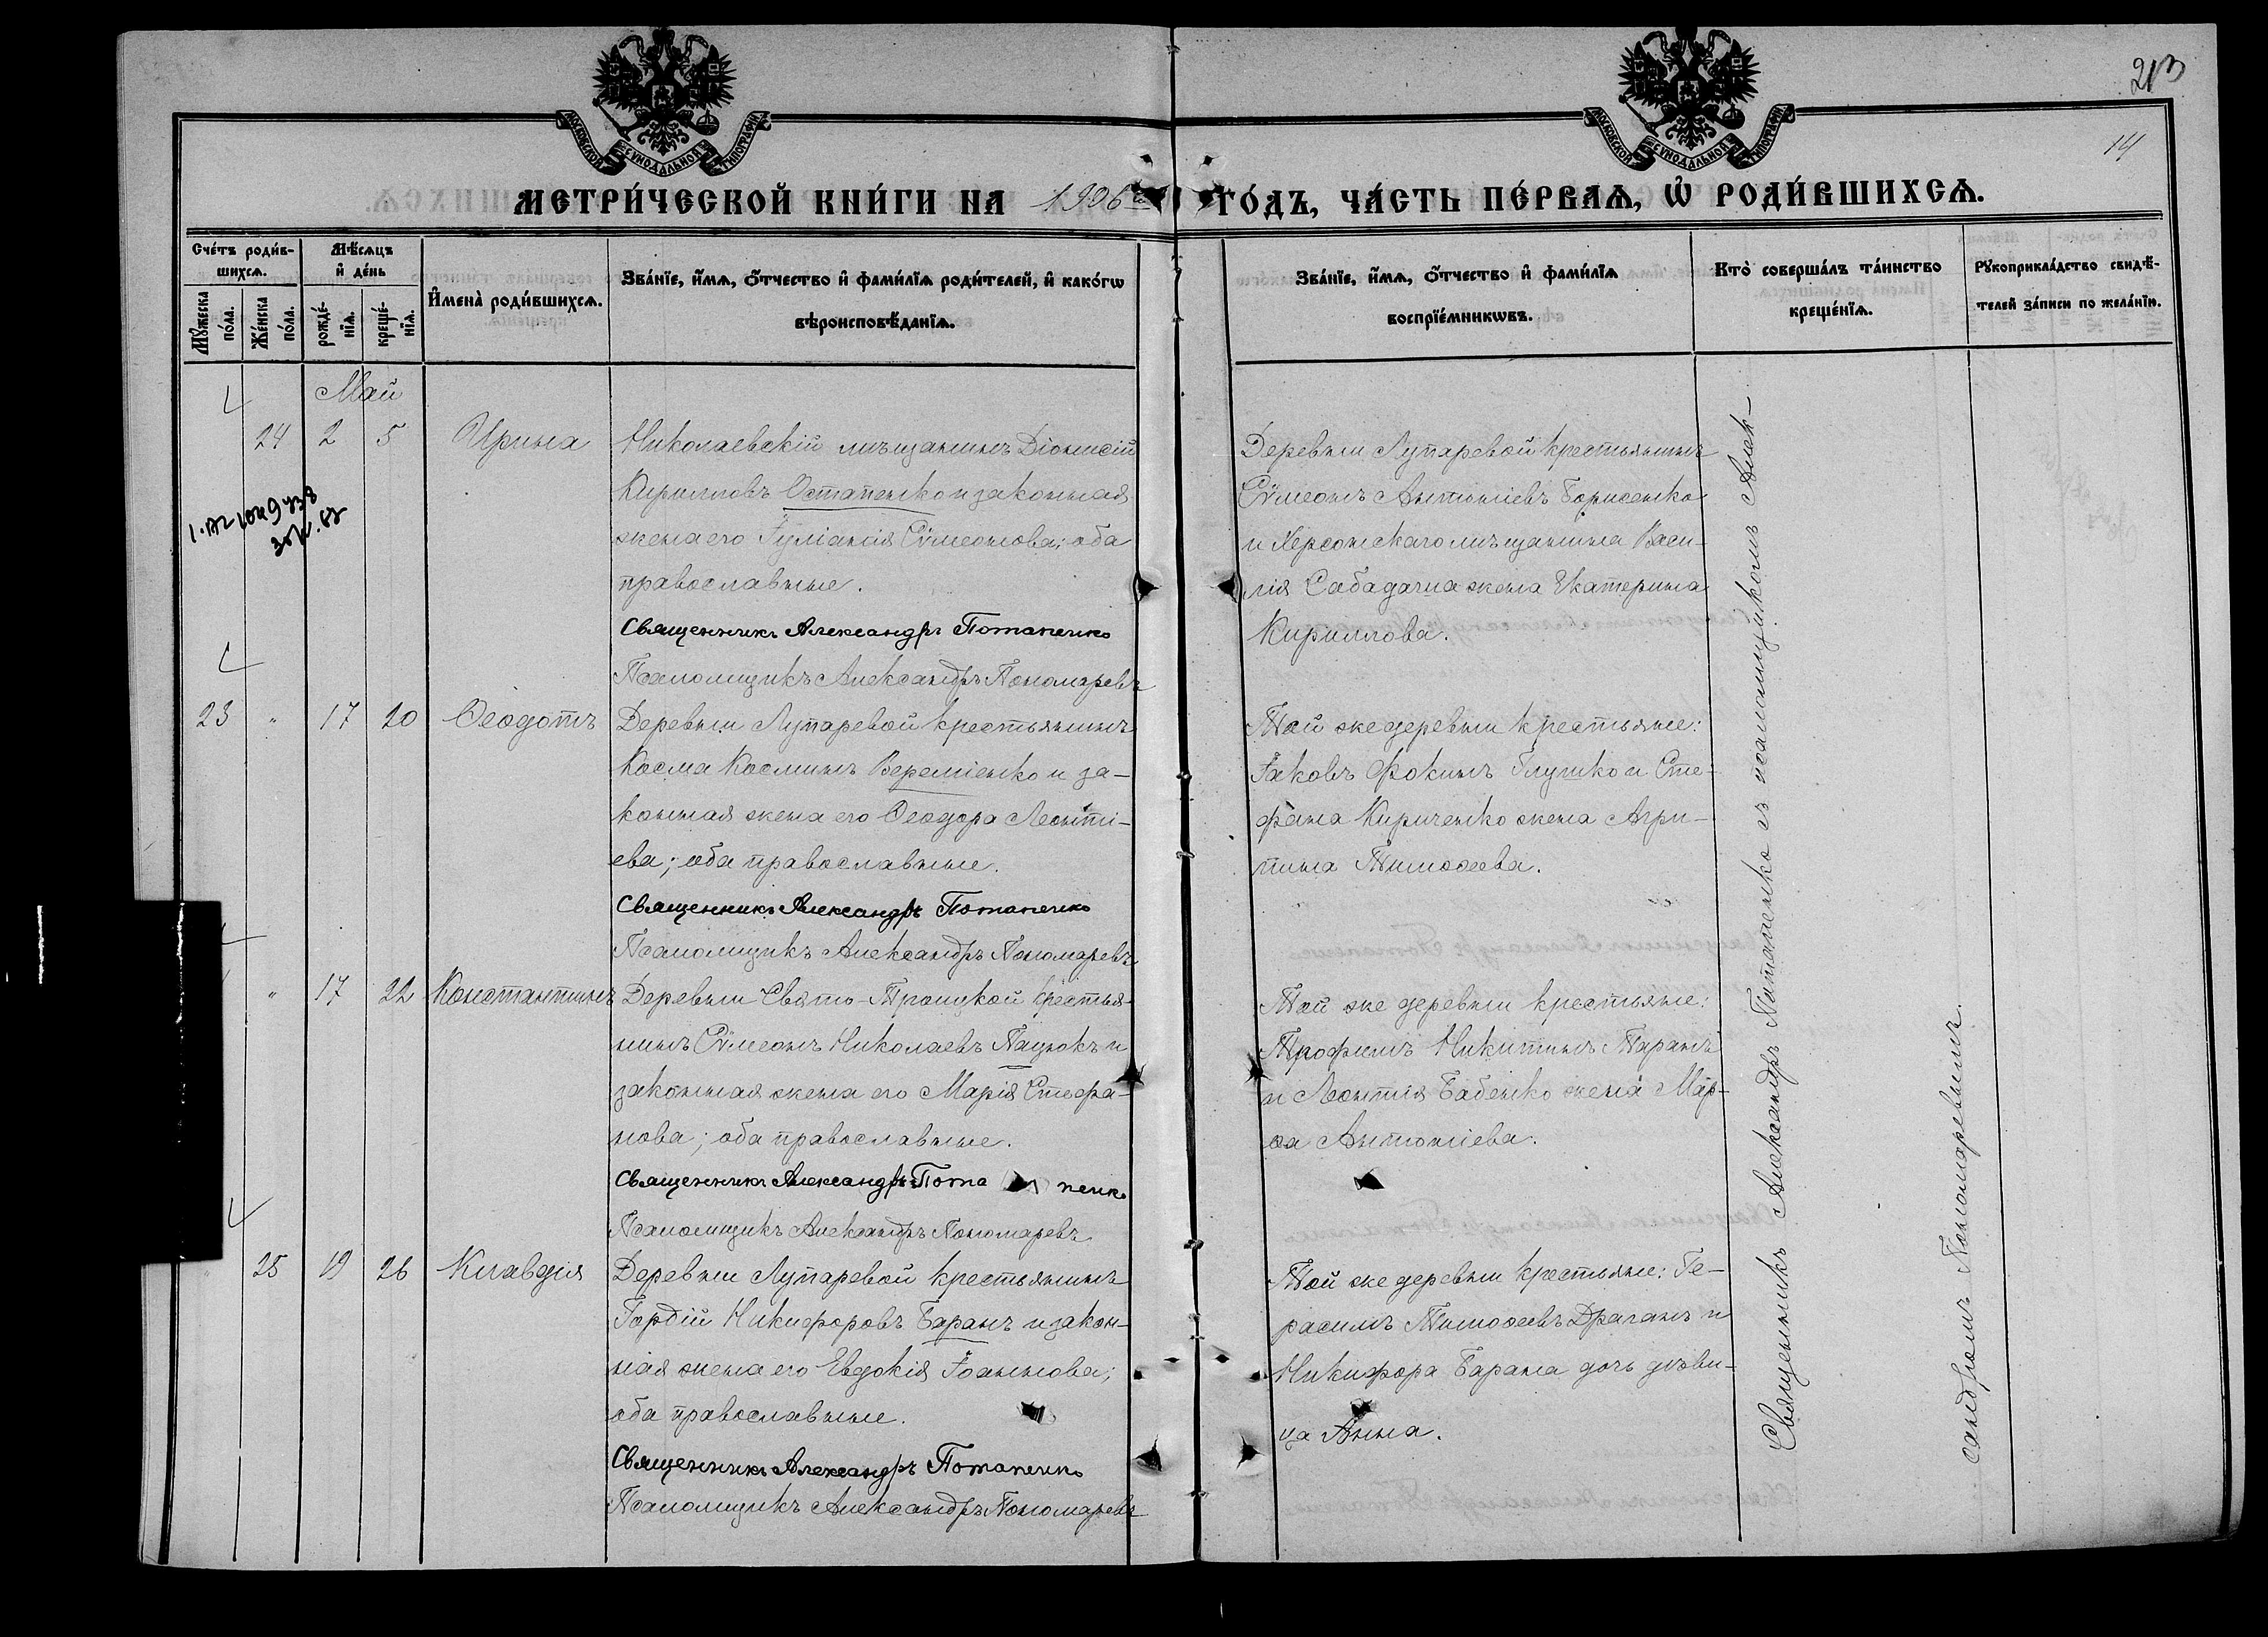 213
14
МОСКОВСКОЙ СѴНОДАЛЬНОЙ ТИПОГРАФІИ
МОСКОВСКОЙ СѴНОДАЛЬНОЙ ТИПОГРАФІИ
МЕТРИ́ЧЕСКОЙ КНИ́ГИ НА 1906й ГО́ДЪ, ЧА́СТЬ ПЕ́РВАѦ, Ѡ҆ РОДИ́ВШИХСѦ.
Сче́тъ роди́в-
шихсѧ.
Мѣ́сѧцъ
и҆ де́нь
Мꙋ́жеска
по́ла.
Же́нска
по́ла.
рожде́-
нїѧ.
креще́-
нїѧ.
И҆мена̀ роди́вшихсѧ.
Зва́нїе, и҆́мѧ, ѻ҆́тчество и҆ фами́лїѧ роди́телей, и҆ како́гѡ
вѣроисповѣ́данїѧ.
Зва́нїе, и҆́мѧ, ѻ҆́тчество и҆ фами́лїѧ
воспрїе́мникѡвъ.
Кто̀ соверша́лъ та́инство
креще́нїѧ.
Рꙋкоприкла́дство свидѣ́-
телей за́писи по жела́нїю.
Май
24 2 5 Ирина Николаевскій мѣщанинъ Діонисій
Кирилловъ Остапенко и законная
жена его Іуліанія Сѵмеонова; оба
православные.
Священникъ Александръ Потапенко
Псаломщикъ Александръ Пономаревъ
Деревни Лупаревой крестьянинъ
Сѵмеонъ Антоніевъ Борисенко
и Херсонскаго мѣщанина Васи-
лія Сабадаша жена Екатерина
Кириллова.
23 " 17 20 Ѳеодотъ Деревни Лупаревой крестьянинъ
Косма Косминъ Веремieнко и за-
конная жена его Ѳеодора Леонті-
ева; оба православные.
Священникъ Александръ Потапенко
Псаломщикъ Александръ Пономаревъ
Той же деревни крестьяне:
Іаковъ Фокинъ Глушко и Сте-
фана Кириченко жена Агри-
пина Тимоѳеева.
" 17 22 Константинъ Деревни Свято-Троицкой крестья-
нинъ Сѵмеонъ Николаевъ Пацюкъ и
законная жена его Марія Стефа-
нова; оба православные.
Священникъ Александръ Пота пенко
Псаломщикъ Александръ Пономаревъ
Той же деревни крестьяне:
Трофимъ Никитинъ Таранъ
и Леонтія Бабенко жена Мар-
ѳа Антоніева.
25 19 26 Клавдія Деревни Лупаревой крестьянинъ
Гордій Никифоровъ Баранъ и закон-
ная жена его Евдокія Іоаннова;
оба православные.
Священникъ Александръ Потапенко
Псаломщикъ Александръ Пономаревъ
Той же деревни крестьяне: Ге-
расимъ Тимоѳеевъ Драганъ и
Никифора Барана дочь дѣви-
ца Анна.
Священникъ Александръ Потапенко съ псаломщикомъ Алек-
сандромъ Пономаревымъ.